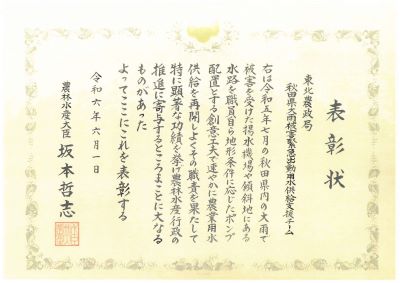 表彰状
東北農政局
秋田県大雨被害緊急出動用水供給支援チーム
右は令和五年七月の秋田県内の大雨で
被害を受けた揚水機場や傾斜地にある
水路を職員自ら地形条件に応じたポンプ
配置とする創意工夫で速やかに農業用水
供給を再開しよくその職責を果たして
特に顕著な功績を挙げ農林水産行政の
推進に寄与するところまことに大なる
ものがあった
よってここにこれを表彰する
令和六年六月一日
農林水産大臣 坂本哲志